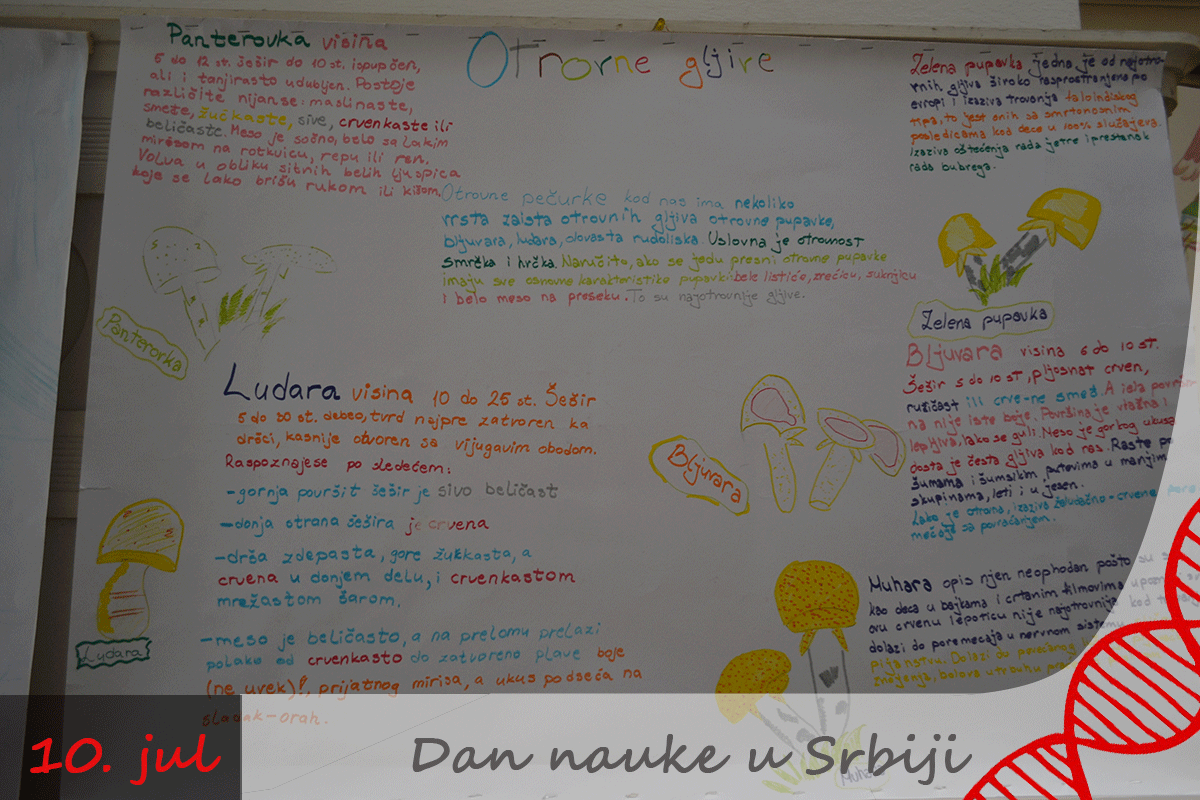 Otrovne gljive
Panterovka visina
6 do 12 st. šešir do 10 st. ispupčen,
ali i tanjirasto udubljen. Postoje
različite nijanse: maslinaste,
smeže, žućkaste, sive, crvenkaste ili
beličaste. Meso je sočno, belo sa lakim
mirisom na rotkvicu, repu ili ren.
Volva u obliku sitnih belih ljuspica
koje se lako brišu rukom ili kišom.
Zelena pupavka jedna je od najotro-
vnih gljiva široko rasprostranjena po
evropi i izaziva trovanja faloindiskog
tipa, to jest onih sa smrtonosnim
posledicama kod dece u 100% slučajeva.
izaziva oštećenja rada jetre i prestanak
rada bubrega.
Otrovne pečurke kod nas ima nekoliko
vrsta zaista otrovnih gljiva otrovne pupavke,
bljuvara, ludara, olovasta rudoliska. Uslovna je otrovnost
smrčka i hrčka. Naručito, ako se jedu presni otrovne pupavke
imaju sve osnovne karakteristike pupavki: bele listiće, vrećicu, suknjicu
i belo meso na preseku. To su najotrovnije gljive.
Panterovka
Zelena pupavka
Ludara visina 10 do 25 st. Šešir
5 do 30 st. debeo, tvrd najpre zatvoren ka
dršci, kasnije otvoren sa vijugavim obodom.
Raspoznajese po sledećem:
-gornja površit šešir je sivo beličast
-donja strana šešira je crvena
-drša zdepasta, gore žukkasta, a
crvena u donjem delu, i crvenkastom
mrežastom šarom.
-meso je beličasto, a na prelomu prelazi
polako od crvenkasto do zatvoreno plave boje
(ne uvek)!, prijatnog mirisa, a ukus podseća na
sladak-orah.
Ludara
Bljuvara
Bljuvara visina 6 do 10 st.
Šešir 5 do 10 st, pljosnat crven,
ružičast ili crve-ne smeđ. A cela površi-
na nije iste boje. Površina je vlažna i
lepljiva, lako se guli. Meso je gorkog ukusa
dosta je česta gljiva kod nas. Raste po
šumama i šumskim putevima u manjim
skupinama, leti i u jesen.
Iako je otrovna, izaziva želudačno-crevne pore
mećaje sa povraćanjem.
Muhara opis njen neophodan pošto su s
kao deca u bajkama i crtanim filmovima upoznal
ovu crvenu lepoticu nije najotrovnija kod
dolazi do poremećaja u nervnom sistemu
pijanstvu. Dolazi do pojačanog
znojenja, bolova u trbuhu
Muhara
10. jul
Dan nauke u Srbiji